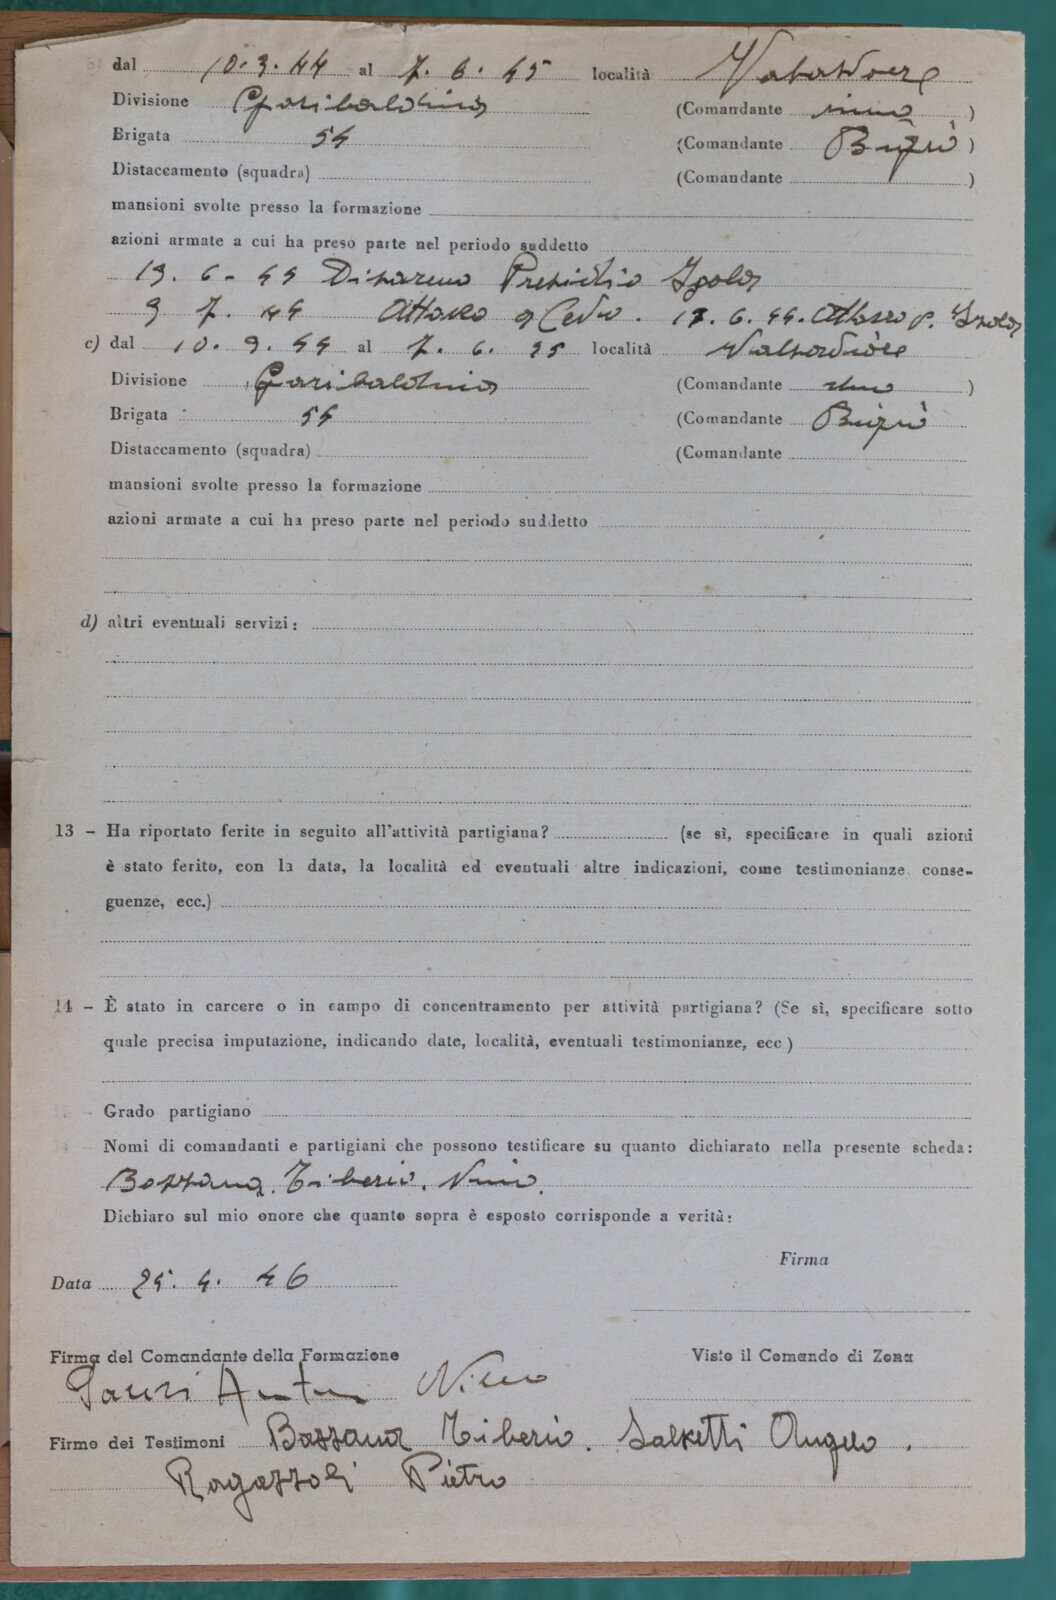 dal 10.9.44 al 7.6.45 località
Divisione Garibaldina (Comandante nino )
Brigata 54 (Comandante Bigio )
Distaccamento (squadra) (Comandante )
mansioni svolte presso la formazione
azioni armate a cui ha preso parte nel periodo suddetto
19. 6 - 44 Disarmo Presidio Isola
9 7. 44 Attacco a Cedegolo. 17. 6. 44. Attacco p. Isola
c) dal 10. 9. 44 al 7. 6. 45 località Valsaviore
Divisione Garibaldina (Comandante nino )
Brigata 54 (Comandante Bigio
Distaccamento (squadra) (Comandante
mansioni svolte presso la formazione
azioni armate a cui ha preso parte nel periodo suddetto
d) altri eventuali servizi:
13 - Ha riportato ferite in seguito all'attività partigiana? (se sì, specificare in quali azioni
è stato ferito, con la data, la località ed eventuali altre indicazioni, come testimonianze, conse-
guenze, ecc.)
14 - È stato in carcere o in campo di concentramento per attività partigiana? (Se sì, specificare sotto
quale precisa imputazione, indicando date, località, eventuali testimonianze, ecc.)
Grado partigiano
Nomi di comandanti e partigiani che possono testificare su quanto dichiarato nella presente scheda:
Bazzana. Tiberio. Nino.
Dichiaro sul mio onore che quanto sopra è esposto corrisponde a verità:
Firma
Data 25. 4. 46
Firma del Comandante della Formazione Visto il Comando di Zona
Nino
Firme dei Testimoni Bazzana Tiberio. Salvetti Angelo.
Ragazzoli Pietro